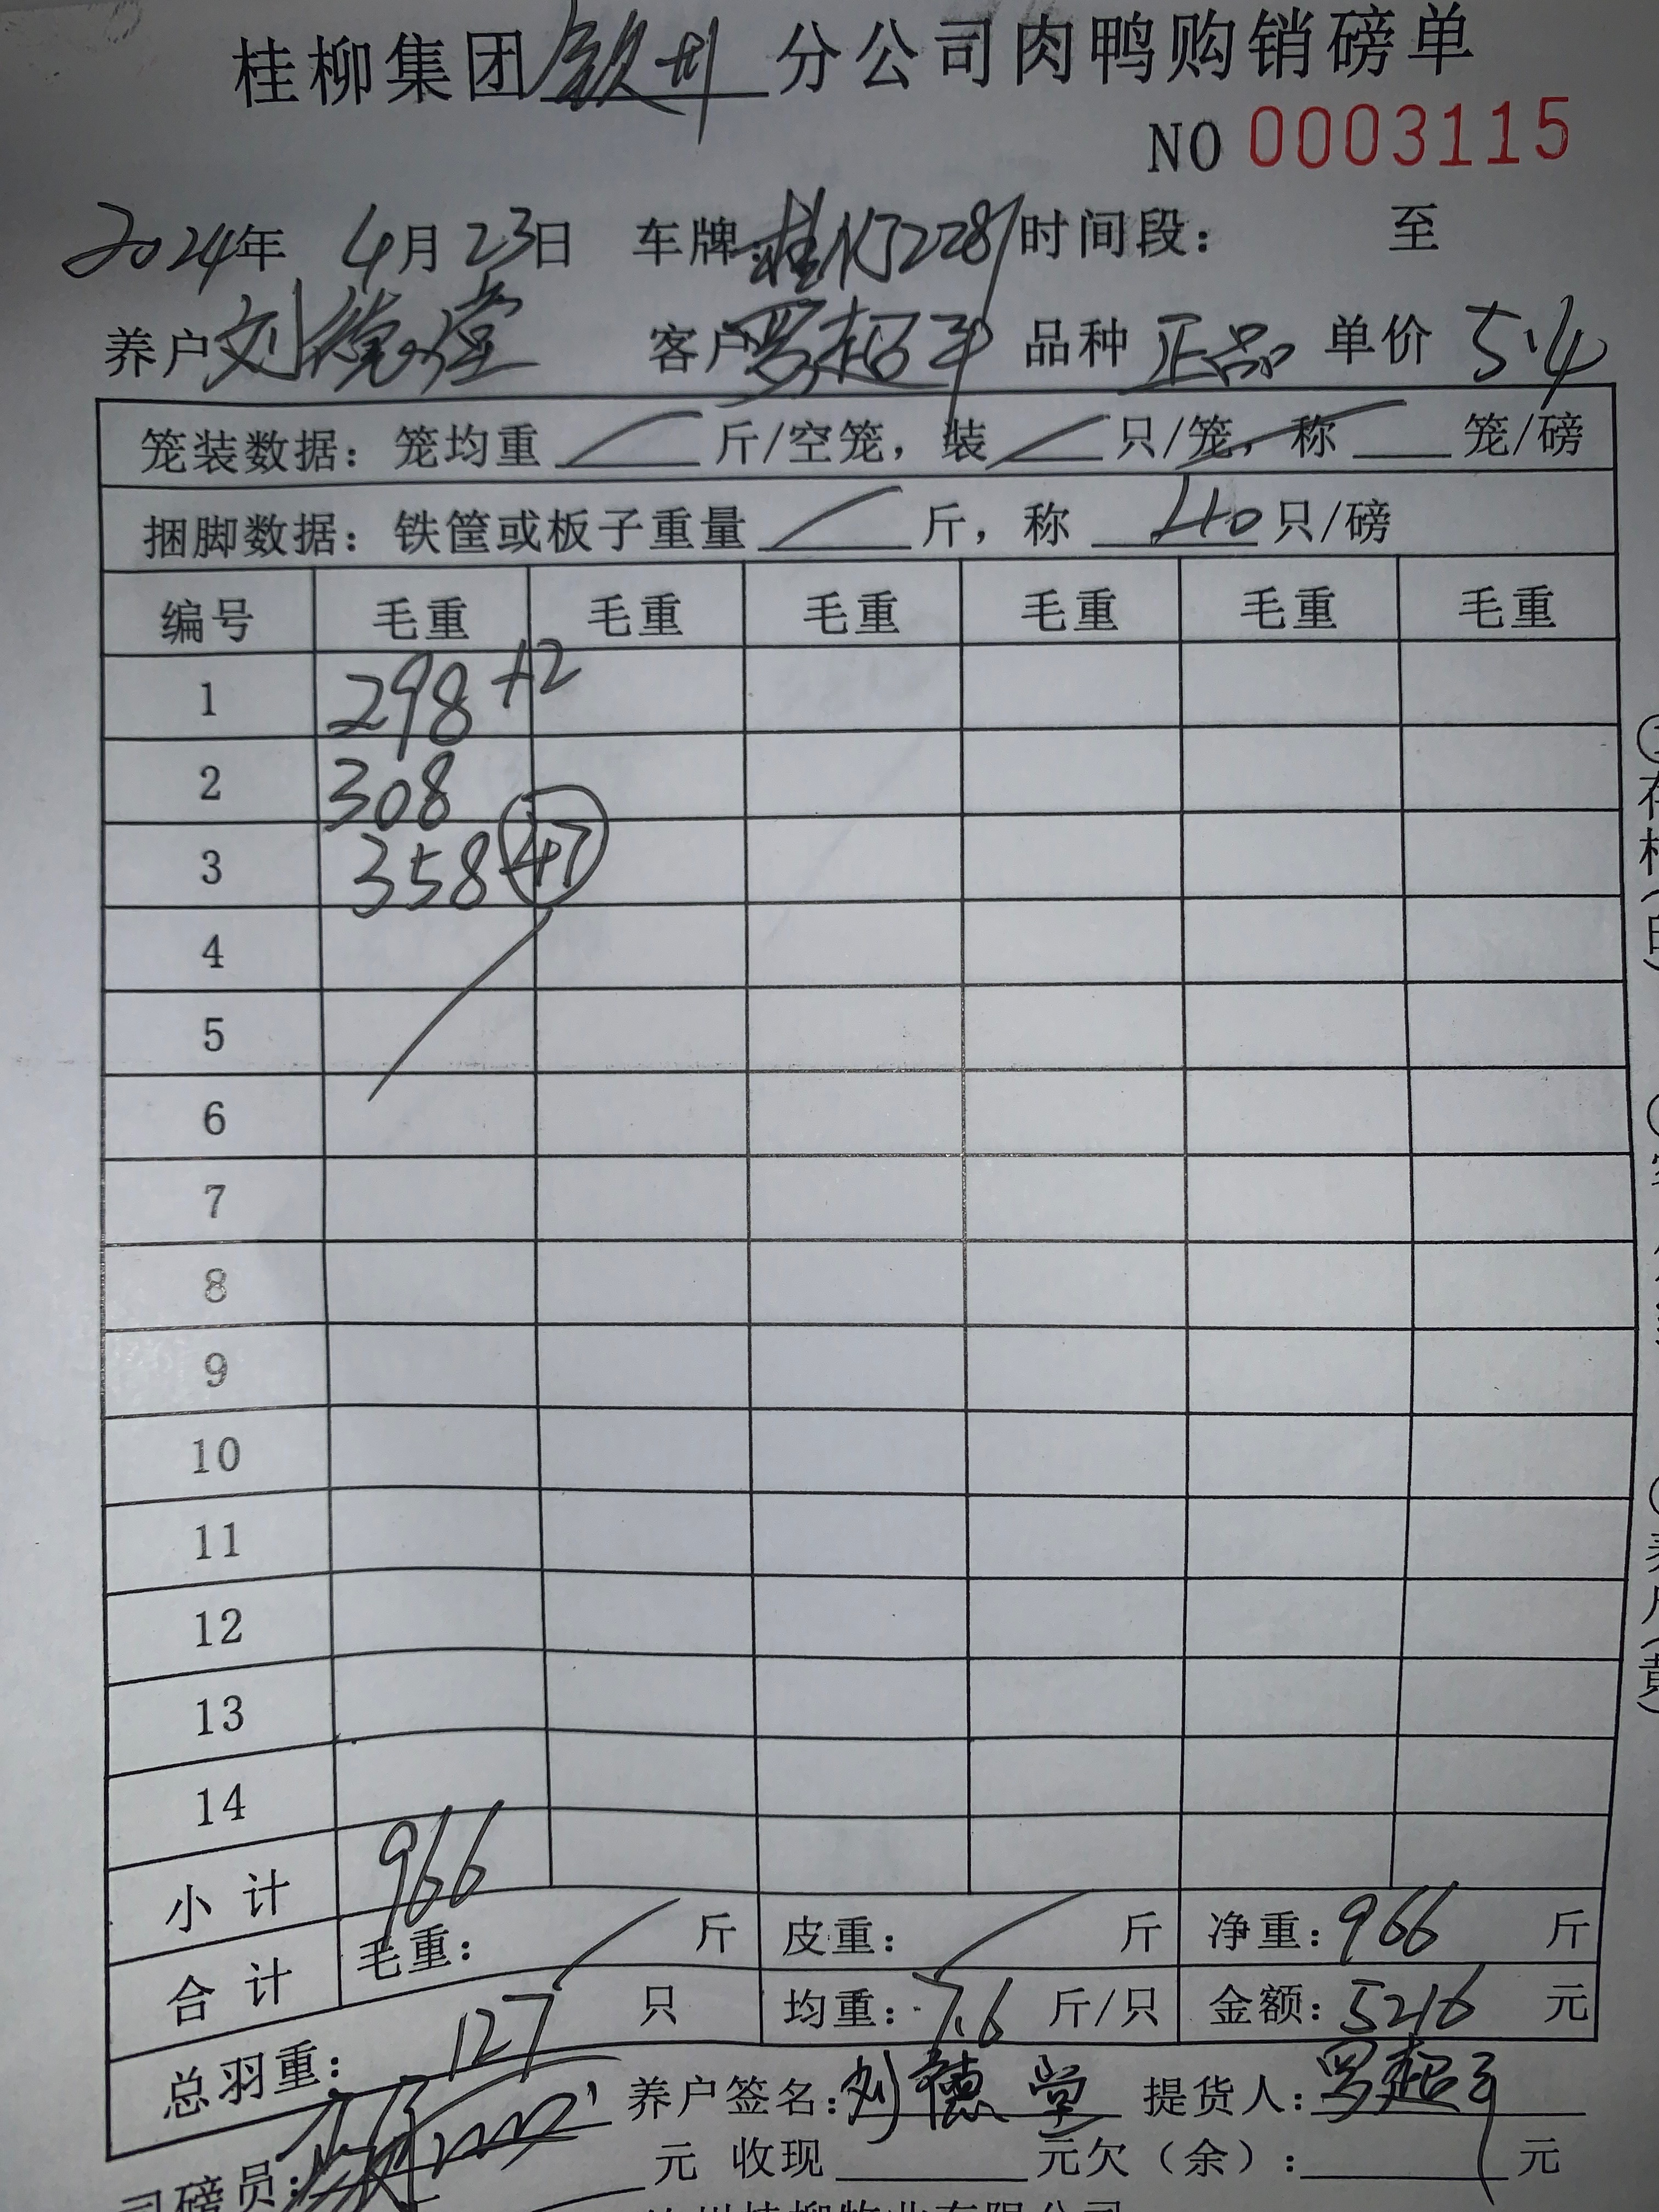 桂柳集团 钦州 分公司肉鸭购销磅单
NO 0003115
2024年 4月23日 车牌:桂N52281 时间段: 至
养户 刘德堂 客户 罗超平 品种 正品 单价 5.4
笼装数据:笼均重 斤/空笼,装 只/笼,称 笼/磅
捆脚数据:铁筐或板子重量 斤,称 40 只/磅
编号 毛重 毛重 毛重 毛重 毛重 毛重
1 298 +2
2 308
3 358 +7
4
5
6
7
8
9
10
11
12
13
14
小计 966
合计 毛重: 斤 皮重: 斤 净重:966 斤
总羽重: 127 只 均重:7.6 斤/只 金额:5216 元
司磅员: 养户签名:刘德堂 提货人:罗超平
元 收现 元欠(余): 元